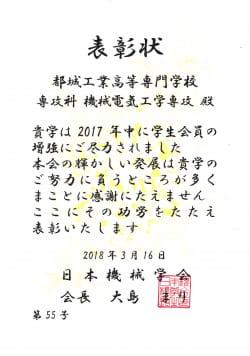 表彰状
都城工業高等専門学校
専攻科 機械電気工学専攻 殿
貴学は2017年中に学生会員の
増強にご尽力されました
本会の輝かしい発展は貴学の
ご努力に負うところが多く
まことに感謝にたえません
ここにその功労をたたえ
表彰いたします
2018年3月16日
日本機械学会
会長 大島 まり
第55号